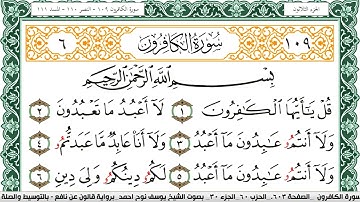 الجزء الثلاثون
سورة الكافرون ١٠٩ - النصر ١١٠ - المسد ١١١
٦ سُورَةُ الكَافِرُونَ ١٠٩
بِسْمِ اللَّهِ الرَّحْمَٰنِ الرَّحِيمِ
قُلْ يَٰٓأَيُّهَا ٱلْكَٰفِرُونَ ١ لَآ أَعْبُدُ مَا تَعْبُدُونَ ٢
وَلَآ أَنتُمُۥ عَٰبِدُونَ مَآ أَعْبُدُ ٣ وَلَآ أَنَا۠ عَابِدٌ مَّا عَبَدتُّمُۥ ٤
وَلَآ أَنتُمُۥ عَٰبِدُونَ مَآ أَعْبُدُ ٥ لَكُمُۥ دِينُكُمُۥ وَلِىَ دِينِ ٦
سورة الكافرون .. الصفحة ٦٠٣. الحزب ٦٠ الجزء ٣٠ . بصوت الشيخ يوسف نوح احمد .برواية قالون عن نافع - بالتوسيط والصلة